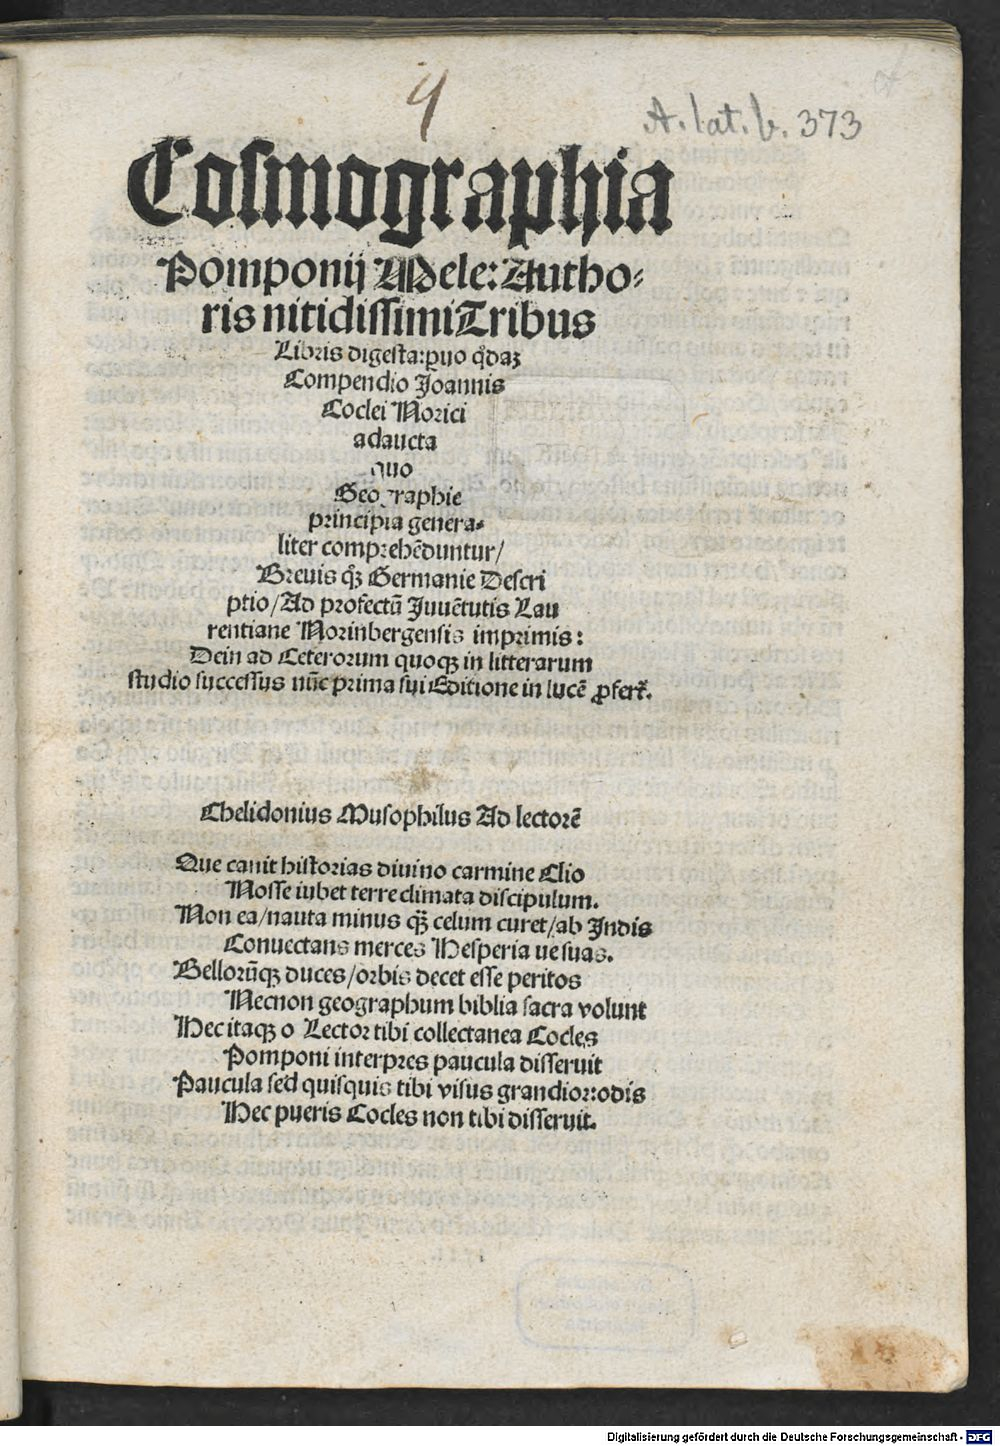 4
A. lat. b. 373
Cosmographia
Pomponij Mele: Autho⸗
ris nitidissimi Tribus
Libris digesta: ꝑuo qͦdaꝫ
Compendio Joannis
Coclei Norici
adaucta
quo
Geographie
principia genera⸗
liter comprehēduntur/
Breuis qꝫ Germanie Descri
ptio/Ad profectū Juuētutis Lau
rentiane Norinbergensis imprimis:
Dein ad Ceterorum quoqꝫ in litterarum
studio successus nūc prima sui Editione in lucē ꝓfert̃.
Chelidonius Musophilus Ad lectorē
Que canit historias diuino carmine Clio
Nosse iubet terre climata discipulum.
Non ea/nauta minus qꝫ̃ celum curet/ab Indis
Conuectans merces Hesperia ue suas.
Bellorūqꝫ duces/orbis decet esse peritos
Necnon geographum biblia sacra volunt
Hec itaqꝫ o Lector tibi collectanea Cocles
Pomponi interpres paucula disseruit
Paucula sed quisquis tibi visus grandior: odis
Hec pueris Cocles non tibi disseruit.
Digitalisierung gefördert durch die Deutsche Forschungsgemeinschaft - DFG